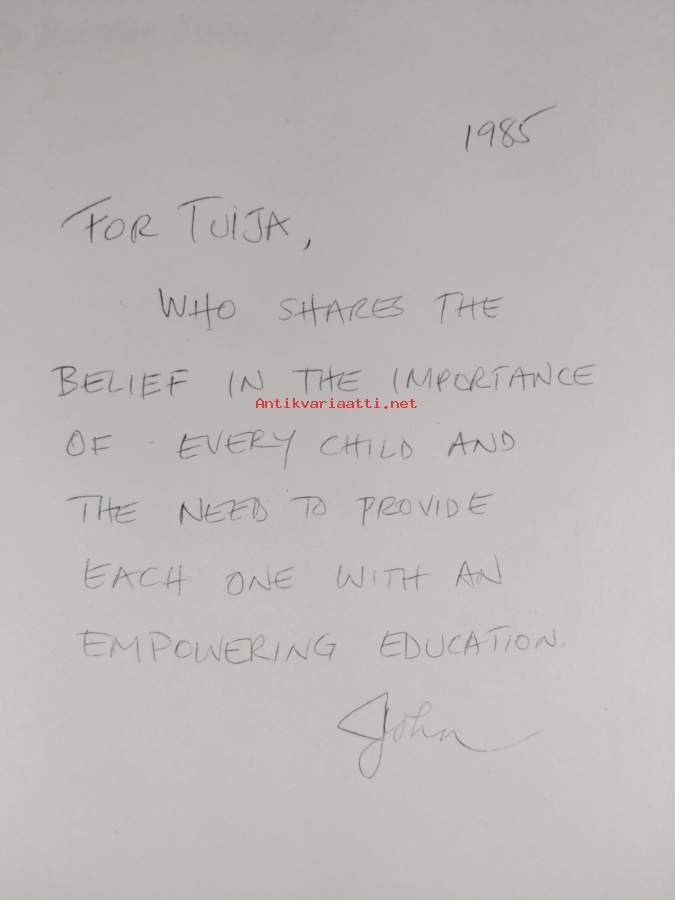 1985
FOR TUIJA,
WHO SHARES THE
BELIEF IN THE IMPORTANCE
Antikvariaatti.net
OF EVERY CHILD AND
THE NEED TO PROVIDE
EACH ONE WITH AN
EMPOWERING EDUCATION.
John